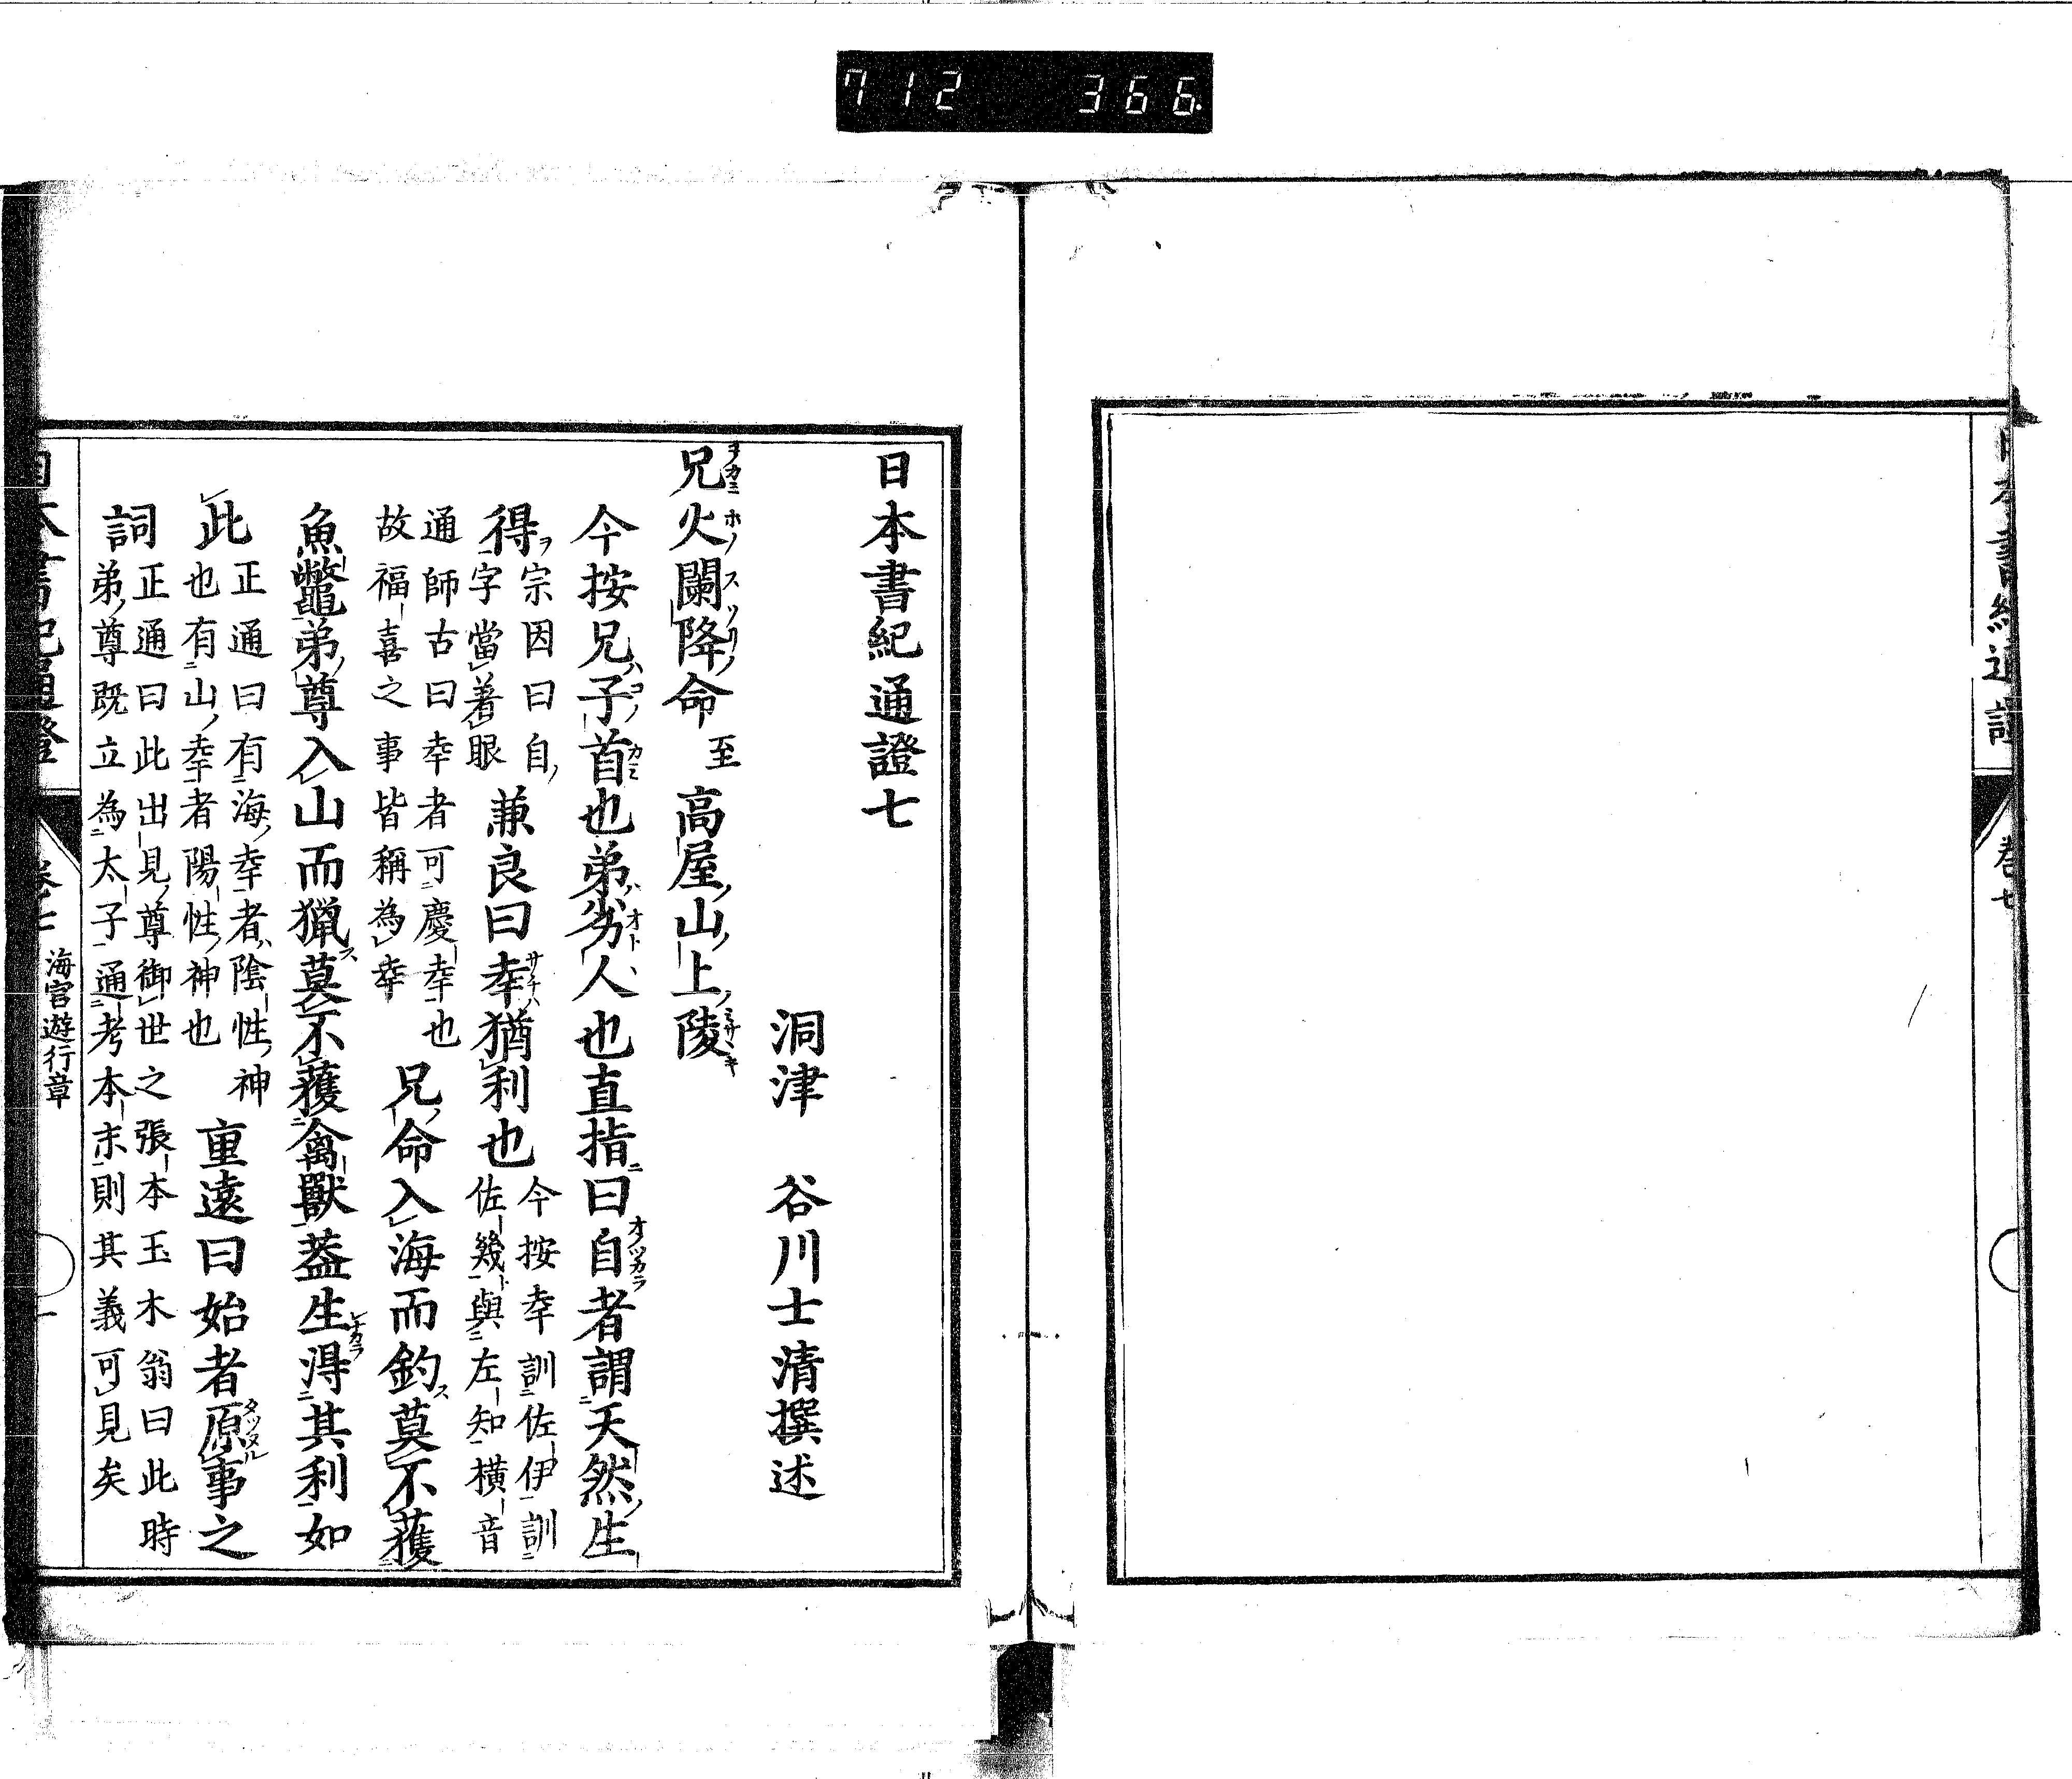 712 366
日本書紀通證
卷七
日本書紀通證七
洞津 谷川士清撰述
兄火闌降命至高屋山上陵
今按兄子首也弟劣人也直指曰自者謂天然生
得宗因曰自字當著眼兼良曰幸猶利也今按幸訓佐伊訓佐幾與左知橫音
通師古曰幸者可慶幸也故福喜之事皆稱為幸兄命入海而釣莫不獲
魚鼈弟尊入山而猟莫不獲禽獸葢生得其利如
此正通曰有海幸者陰性神也有山幸者陽性神也重遠曰始者原事之
詞正通曰此出見尊御世之張本玉木翁曰此時弟尊既立為太子通考本末則其義可見矣
日本書紀通證 卷七 海宮遊行章 一